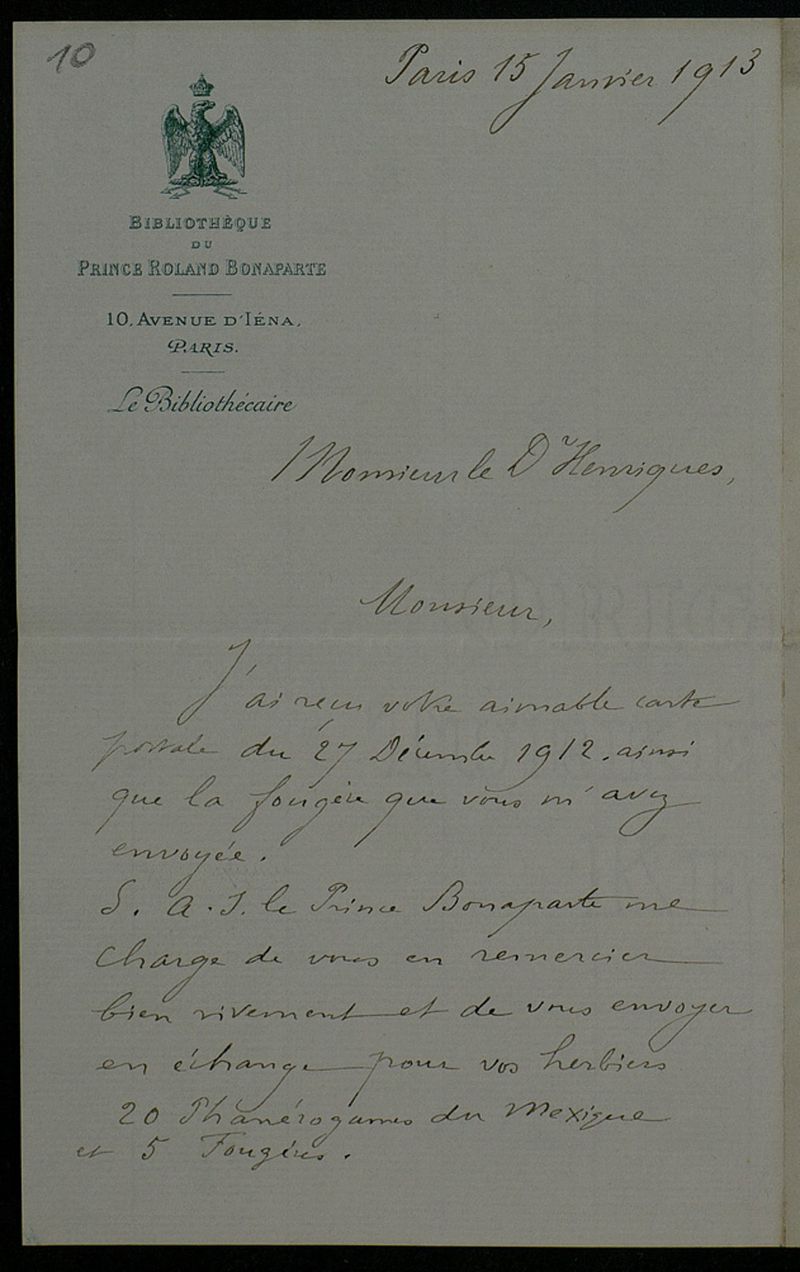 10
Paris 15 Janvier 1913
BIBLIOTHÈQUE
DU
PRINCE ROLAND BONAPARTE
10, AVENUE D'IÉNA,
PARIS.
Le Bibliothécaire
Monsieur le Dr Henriques,
Monsieur,
J'ai reçu votre aimable carte
postale du 27 Décembre 1912. ainsi
que la fougère que vous m'avez
envoyée.
S. A. I. le Prince Bonaparte me
charge de vous en remercier
bien vivement et de vous envoyer
en échange pour vos herbiers
20 Phanérogames du Mexique
et 5 Fougères.